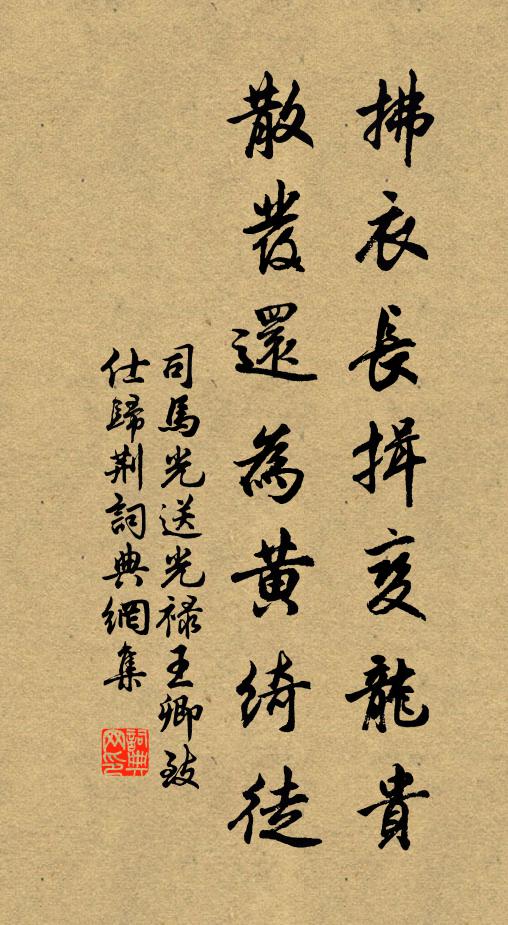 拂衣長揖夔龍貴
散發還為黃綺徒
司馬光送光祿王卿致
仕歸荆詞典網集
詞典网印